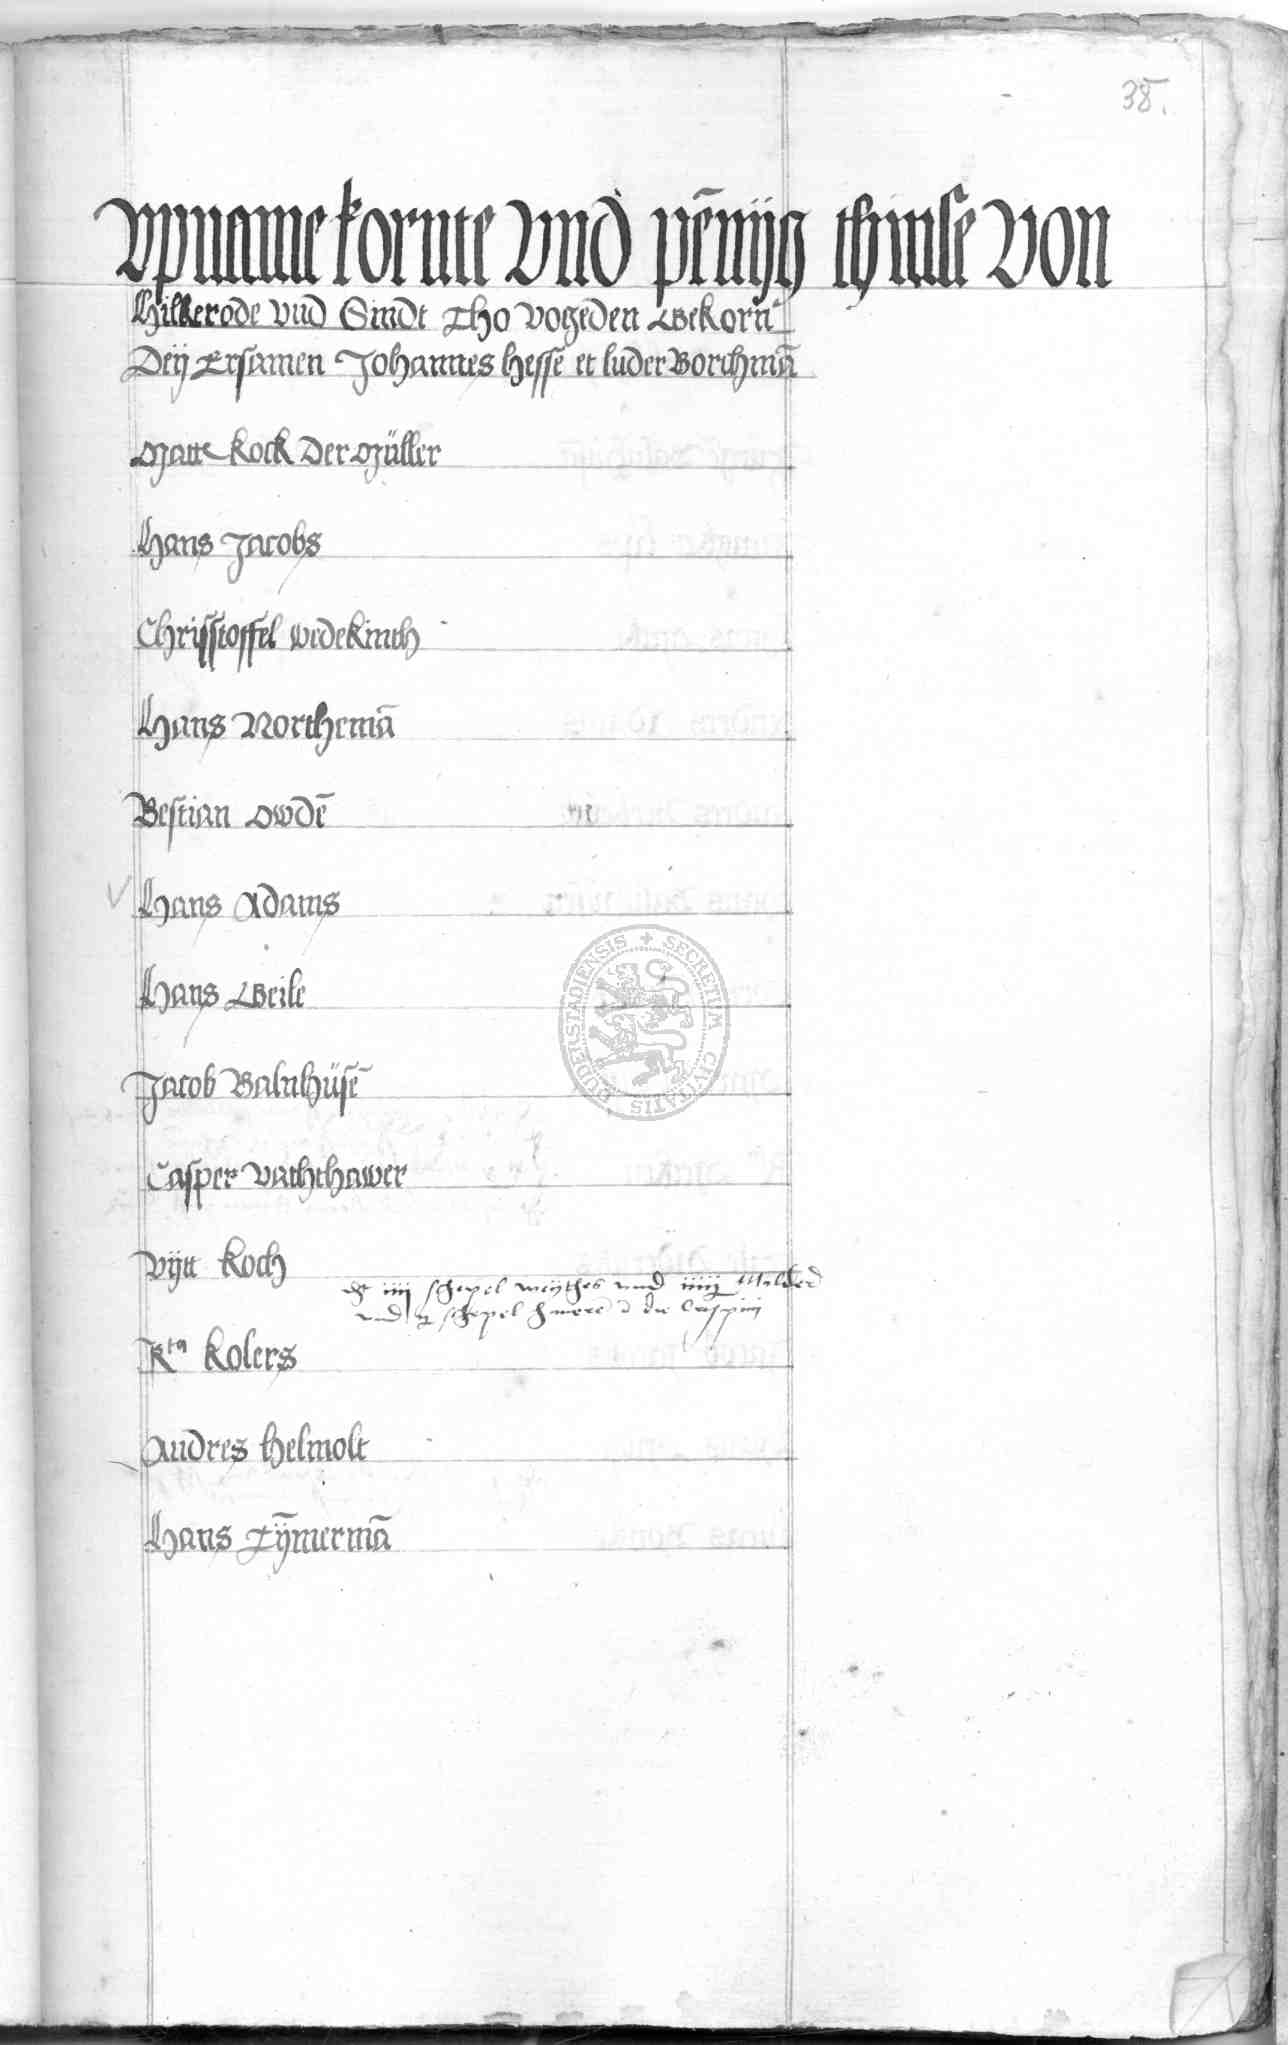 38.
Vpname kornte Vnd pēnijg thinse Von
Hilkerode vnd Sindt Tho vogeden Gekorn
Deij Ersamen Johannes Hesse et luder Borchmā
Matt Kock Der Müller
Hans Jacobs
Christoffel wedekinth
Hans Northemā
Bestian Owdē
Hans Adams
Hans Weile
Jacob Balnhüsē
Casper Vaththawer
Vijtt Koch
dt iiij schepel weijthes vnd iiiij Malder
vnd schepel haver die
Kolers
Andres Helmolt
Hans Tÿmermā
SECRETUM CIVITATIS DUDERSTADIENSIS